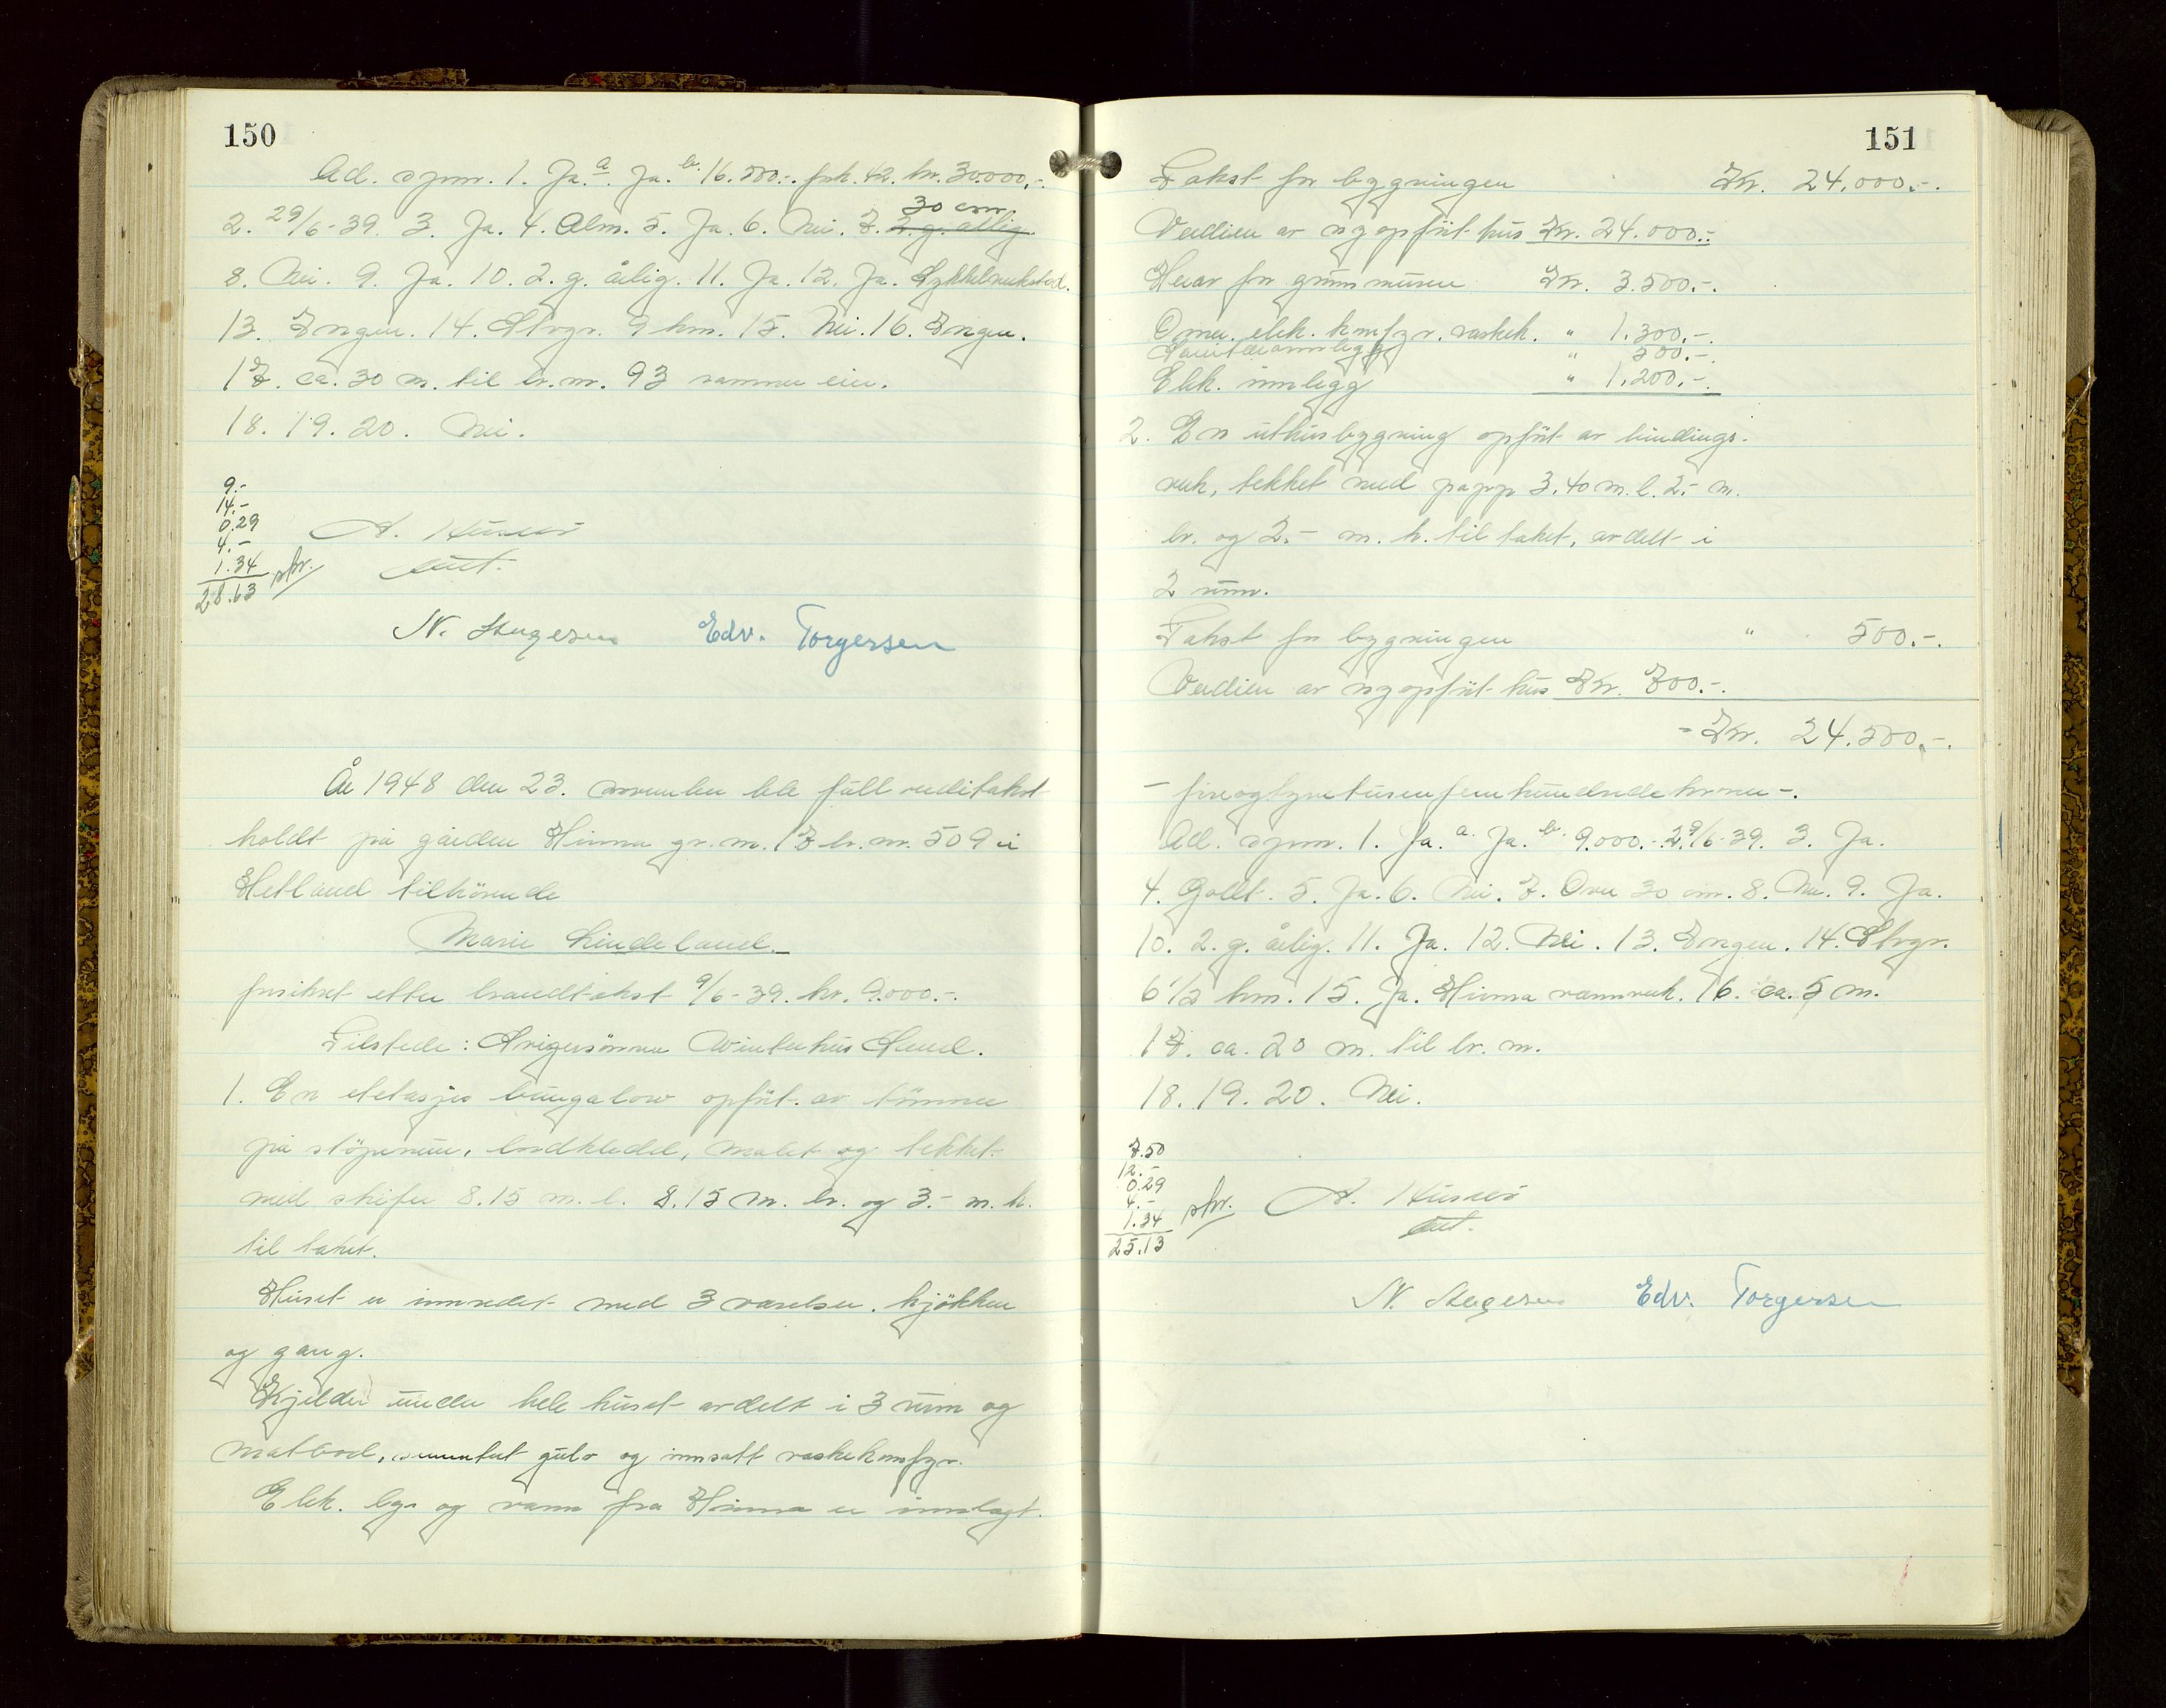 150
Ad. spm. 1. Ja. a. Ja. b. 16.500.- fok. 42. kr. 30.000,-.
30 cm
2. 29/6-39. 3. Ja. 4. Alm. 5. Ja. 6. Nei. 7. 2. g. årlig.
8. Nei. 9. Ja. 10. 2. g. årlig. 11. Ja. 12. Ja.
13. Ingen. 14. Stvgr. 9 km. 15. Nei. 16. Ingen.
17. ca. 30 m. til br. nr. 93 samme eier.
18. 19. 20. Nei.
9.-
14.-
0.29
4.-
1.34
28.63 skr.
A. Husebø
lm.
N. Stugesen Edv. Torgersen
År 1948 den 23. november ble full verditakst
holdt på gården Hinna gr. nr. 17 br. nr. 509 i
Hetland tilhörende
Marie Lindeland.
forsikret etter branntakst 9/6-39. kr. 9.000.-.
Tilstede:
1. En etetasjes bungalow opfört av tömmer
på stöpemur, bordkledd, malet og tekket
med skifer 8.15 m. l. 8.15 m. br. og 3.- m. h.
til taket.
Huset er innredet med 3 værelser, kjökken
og gang.
Kjelder under hele huset avdelt i 3 rum og
matbod, sementert gulv og innsatt vaskekomfyr.
Elek. lys og vann fra Hinna er innlagt.
151
Takst for bygningen Kr. 24.000.-.
Verdien av nyopfört hus Kr. 24.000.-.
Herav for grunnmuren Kr. 3.500.-.
Ovner, elek. komfyr. vaskek. " 1.300.-.
Sanitæranlegg " 500.-.
Elek. innlegg " 1.200.-.
2. En uthusbygning opfört av bindings-
verk, tekket med papp 3.40 m. l. 2.- m.
br. og 2.- m. h. til taket, avdelt i
2 rum.
Takst for bygningen " 500.-.
Verdien av nyopfört hus Kr. 700.-.
- Kr. 24.500,-.
- fireogtyvetusenfemhundrede kroner -.
Ad. spm. 1. Ja. a. Ja. b. 9.000.- 2. 9/6-39. 3. Ja.
4. Godt. 5. Ja. 6. Nei. 7. Over 30 cm. 8. Nei. 9. Ja.
10. 2. g. årlig. 11. Ja. 12. Nei. 13. Ingen. 14. Stvgr.
6 1/2 km. 15. Ja. Hinna vannverk. 16. ca. 5 m.
17. ca. 20 m. til br. nr.
18. 19. 20. Nei.
7.50
12.-
0.29
4.-
1.34
25.13 skr.
A. Husebø
lm.
N. Stugesen Edv. Torgersen